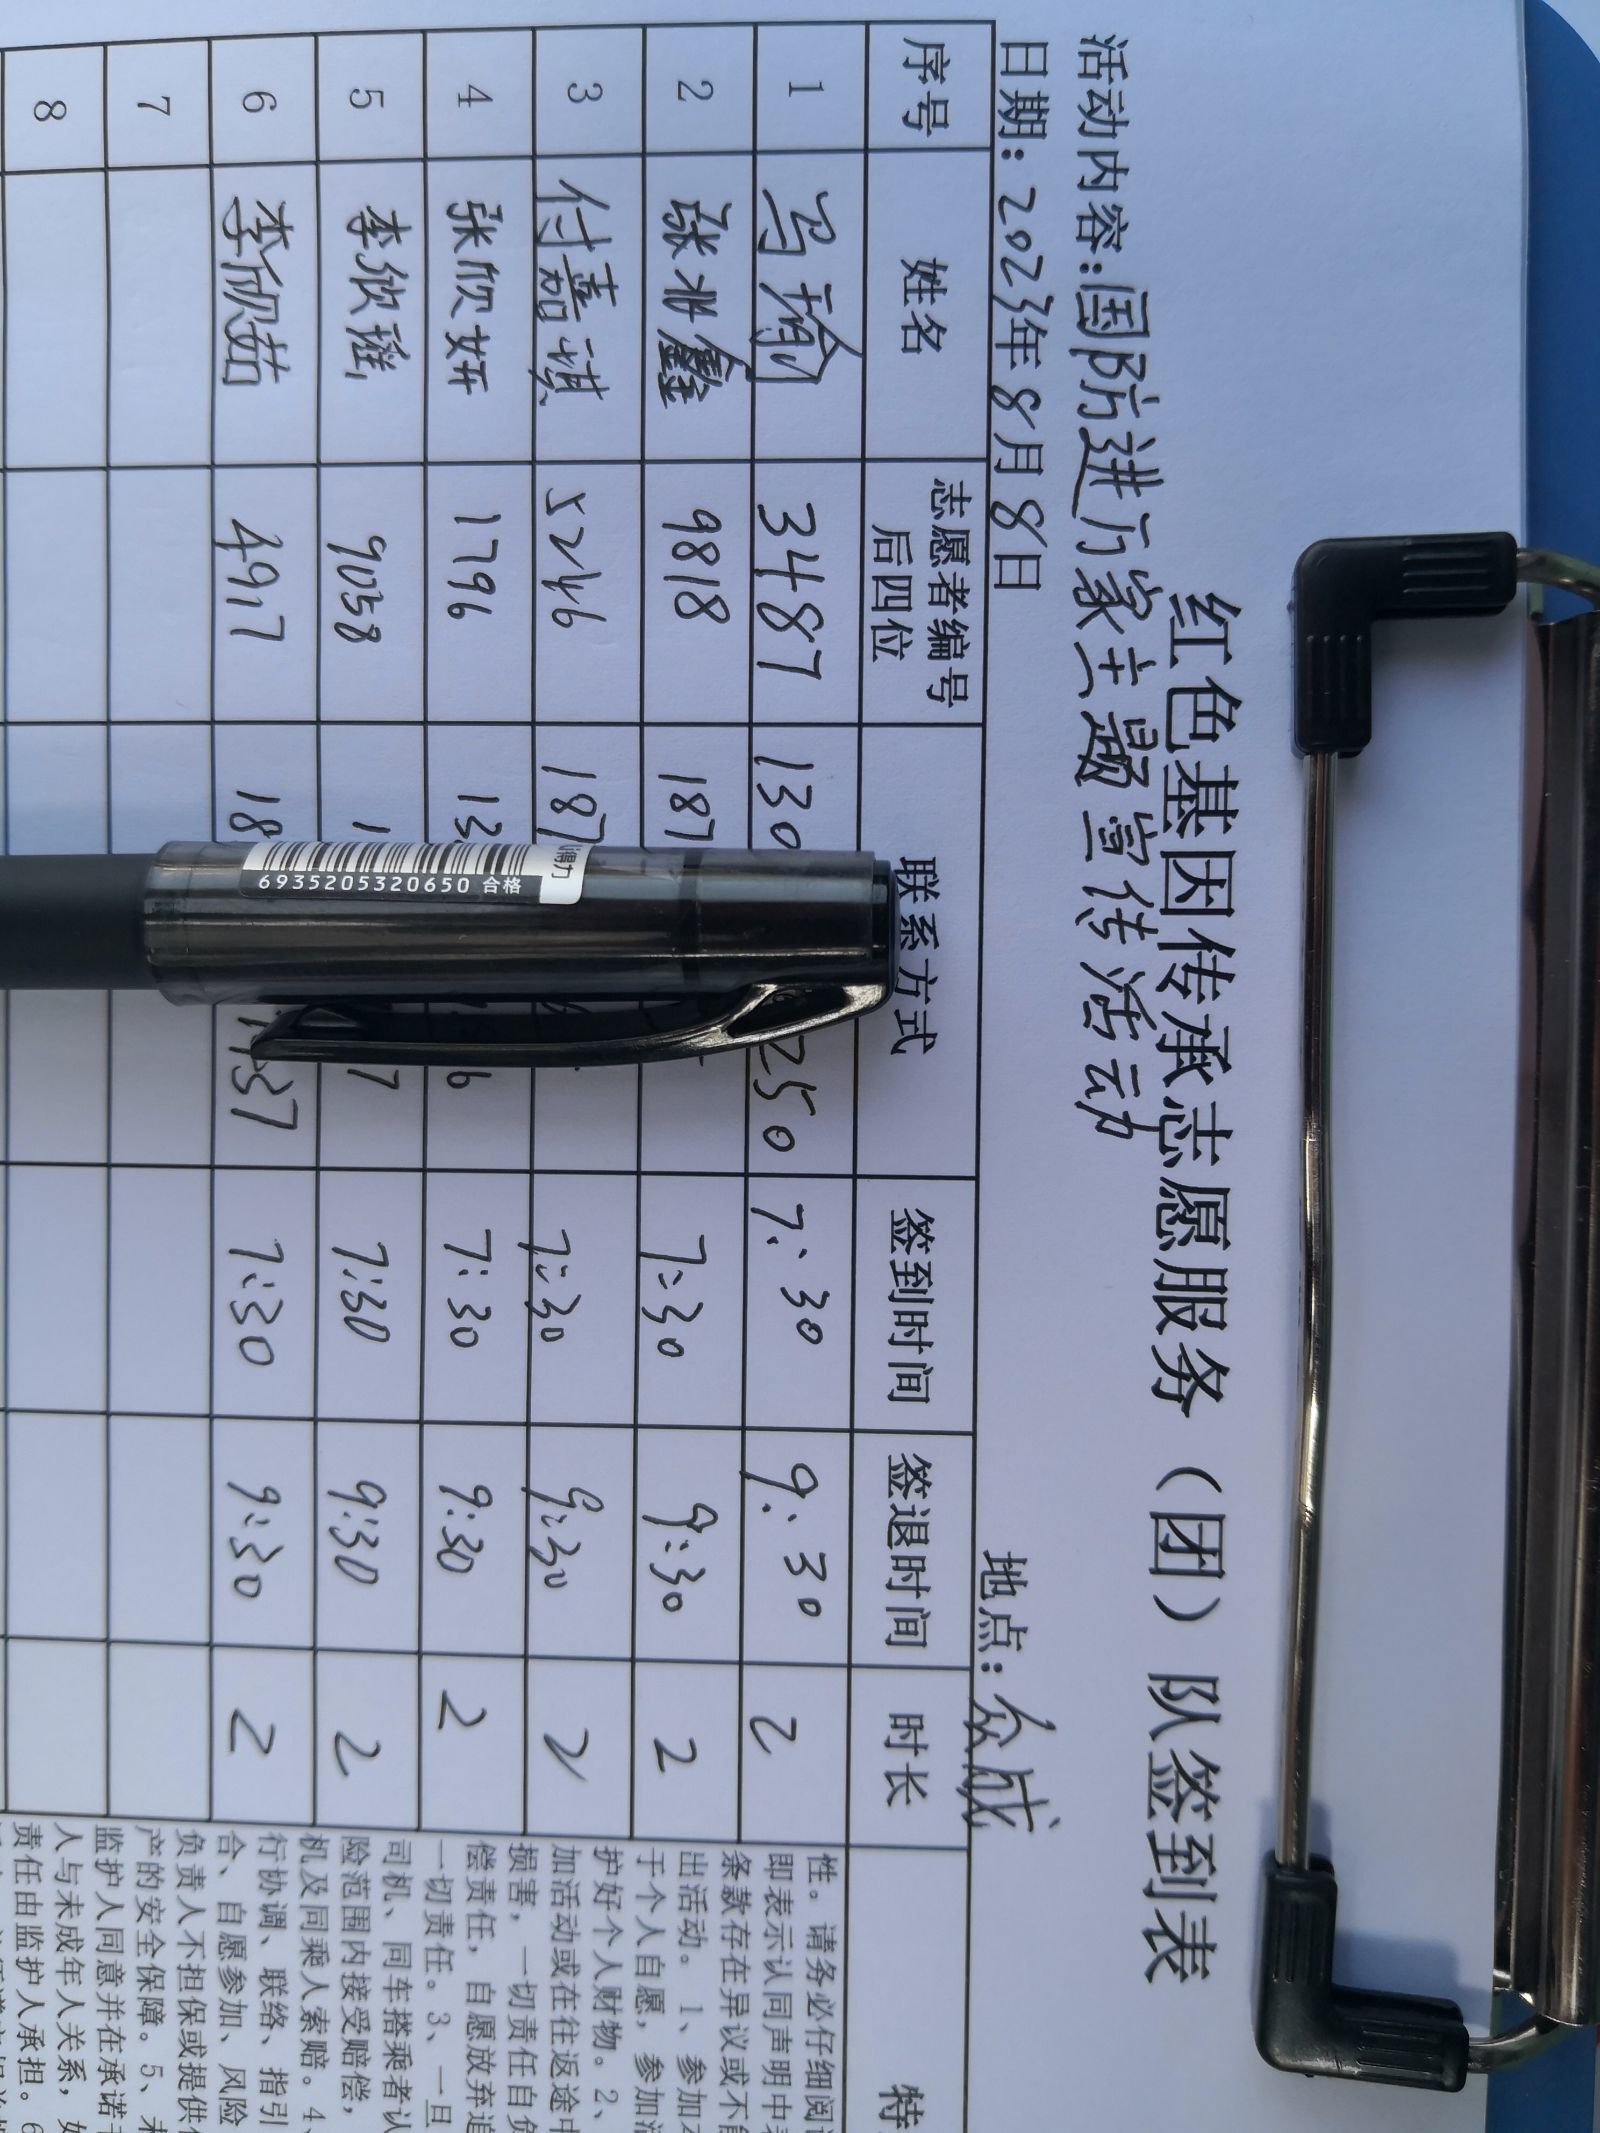 红色基因传承志愿服务（团）队签到表
活动内容：国防进万家主题宣传活动
日期：2023年8月8日 地点：众成
序号 姓名 志愿者编号后四位 联系方式 签到时间 签退时间 时长 特
1 马瑜 3487 130 250 7:30 9:30 2
2 张兆鑫 9818 187 7:30 9:30 2
3 付嘉祺 5246 187 7:30 9:30 2
4 张欣妍 1796 13 6 7:30 9:30 2
5 李欣瑶 9058 1 7 7:30 9:30 2
6 李欣茹 4917 18 37 7:30 9:30 2
7
8
性。请务必仔细阅读
即表示认同声明中
条款存在异议或不能
出活动。1、参加
于个人自愿，参加活
护好个人财物。2、
加活动或在往返途中
损害，一切责任自负
偿责任，自愿放弃追
一切责任。3、一旦
司机、同车搭乘者认
险范围内接受赔偿，
机及同乘人索赔。4、
行协调、联络、指引
合、自愿参加、风险
负责人不担保或提供
产的安全保障。5、未
监护人同意并在承诺
人与未成年人关系，如
责任由监护人承担。6
得力
6935205320650 合格